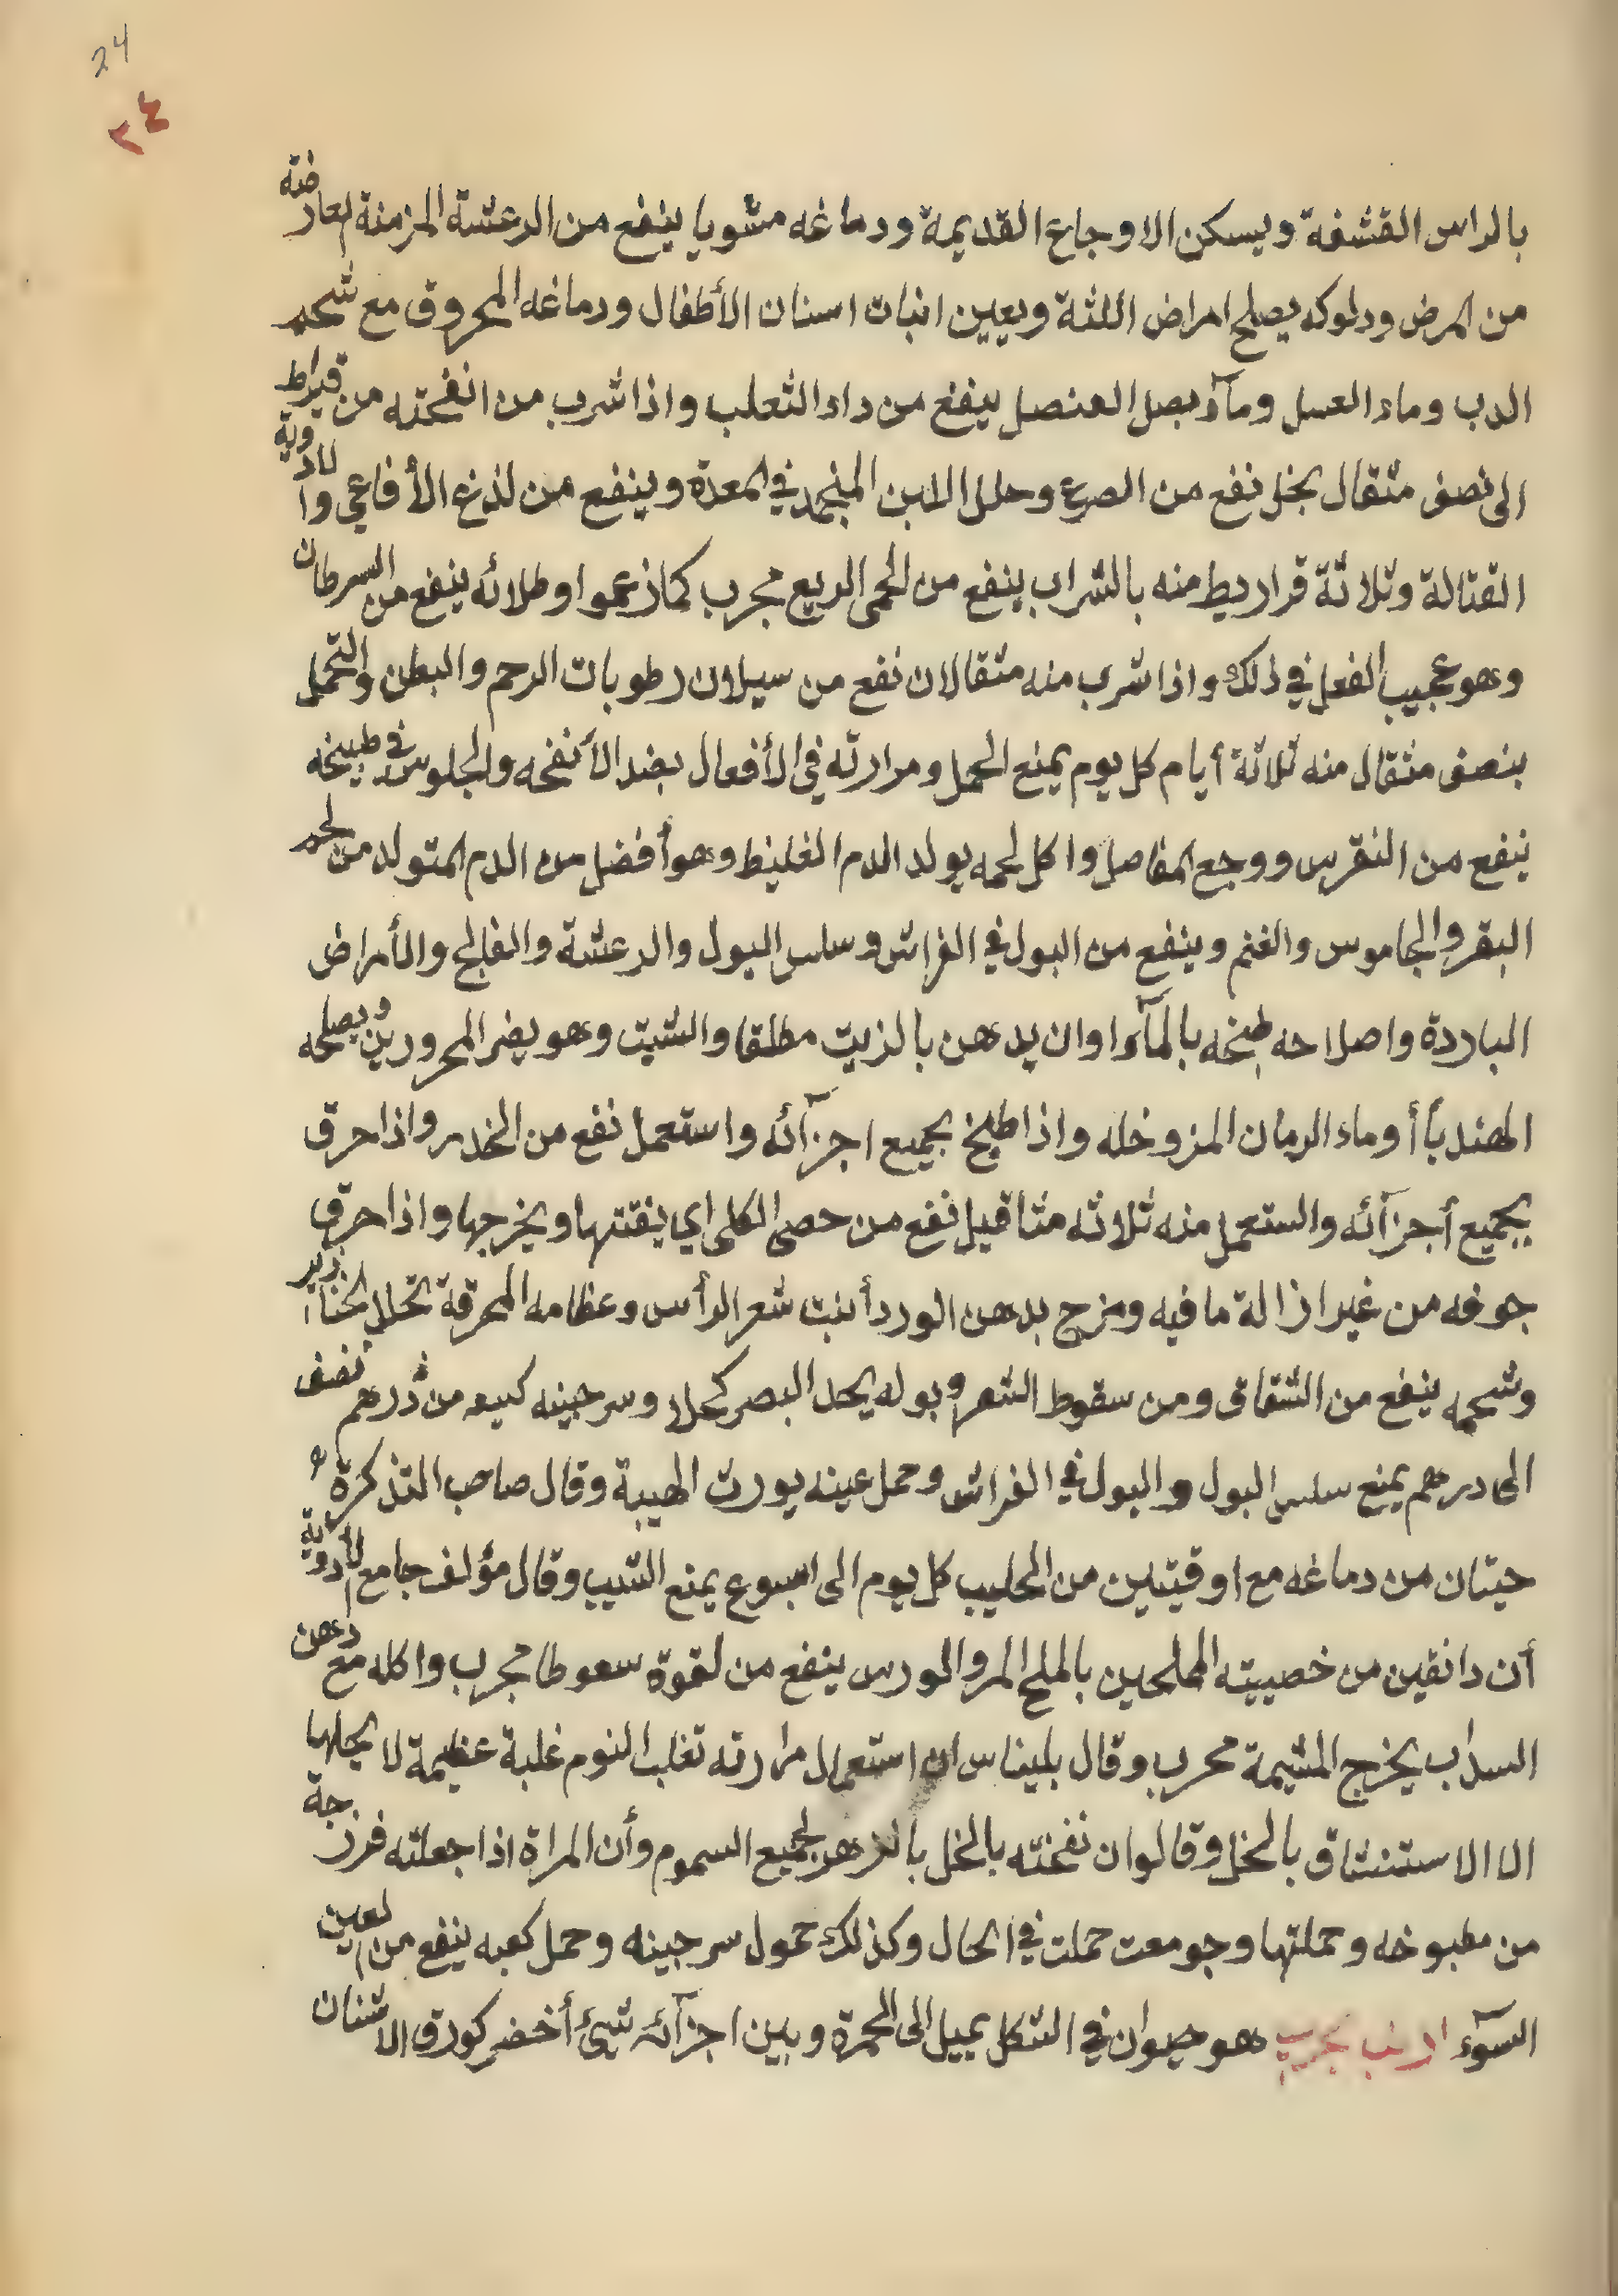 24
٢٤
بالراس القشفة ويسكن الاوجاع القديمة ودماغه مشويا ينفع من الرعشة المزمنة العارضة
من المرض ودلوكه يصلح امراض اللثة ويعين انبات اسنان الأطفال ودماغه المحروق مع شحم
الدب وماء العسل ومآء بصل العنصل ينفع من داء الثعلب واذا شرب من انفحته من قيراط
الى نصف مثقال بخل نفع من الصرع وحلل اللبن المنجمد في المعدة وينفع من لذغ الأفاعي والادوية
القتالة وثلاثة قراريط منه بالشراب ينفع من الحمى الربع مجرب كما زعموا وطلائه ينفع من السرطان
وهو عجيب الفعل في ذلك واذا شرب منه مثقالان نفع من سيلان رطوبات الرحم والبطن والتحمل
بنصف مثقال منه ثلاثة أيام كل يوم يمنع الحمل ومرارته في الأفعال بضد الأنفحه والجلوس في طبيخه
ينفع من النقرس ووجع المفاصل واكل لحمه يولد الدم الغليظ وهو أفضل من الدم المتولد من لحم
البقر والجاموس والغنم وينفع من البول في الفراش وسلس البول والرعشة والفالج والأمراض
الباردة واصلاحه طبخه بالمآء اوان يدهن بالزيت مطلقا والشبت وهو يضر المحرورين ويصلحه
الهندبا أوماء الرمان المز وخله واذا طبخ بجميع اجزآئه واستعمل نفع من الخدر واذا حرق
بجميع أجزآئه والستعمل منه ثلاثه مثاقيل نفع من حصى الكلى اي يفتتها ويخرجها واذا حرق
جوفه من غير ازالة ما فيه ومزج بدهن الورد أنبت شعر الرأس وعظامه المحرقة تحلل الخنازير
وشحمه ينفع من الشقاق ومن سقوط الشعر وبوله يحد البصر كحلا وسرجينه كيعه من درهم نصف
الى درهم يمنع سلس البول والبول في الفراش وحمل عينه يورث الهيبة وقال صاحب التذكرة
حبتان من دماغه مع اوقيتين من الحليب كل يوم الى اسبوع يمنع الشيب وقال مؤلف جامع الأدوية
أن دانقين من خصييته المملحين بالملح المر والورس ينفع من لقوة سعوطا مجرب واكله مع دهن
السداب يخرج المشيمة مجرب وقال بليناس ان استعمال مرارته تغلب النوم غلبة عظيمة لا يحلها
الا الاستنشاق بالخل وقالوا ن نفحته بالخل بالدهر لجميع السموم وأن المراة اذا جعلته فرزجة
من مطبوخه وحملتها وجومعت حملت في الحال وكذلك حمول سرجينه وحمل كعبه ينفع من العين
السوٓء ارنب بحري هو حيوان في الشكل يميل الى الحمرة وبين اجزآئه شئ أخضر كورق الاشنان